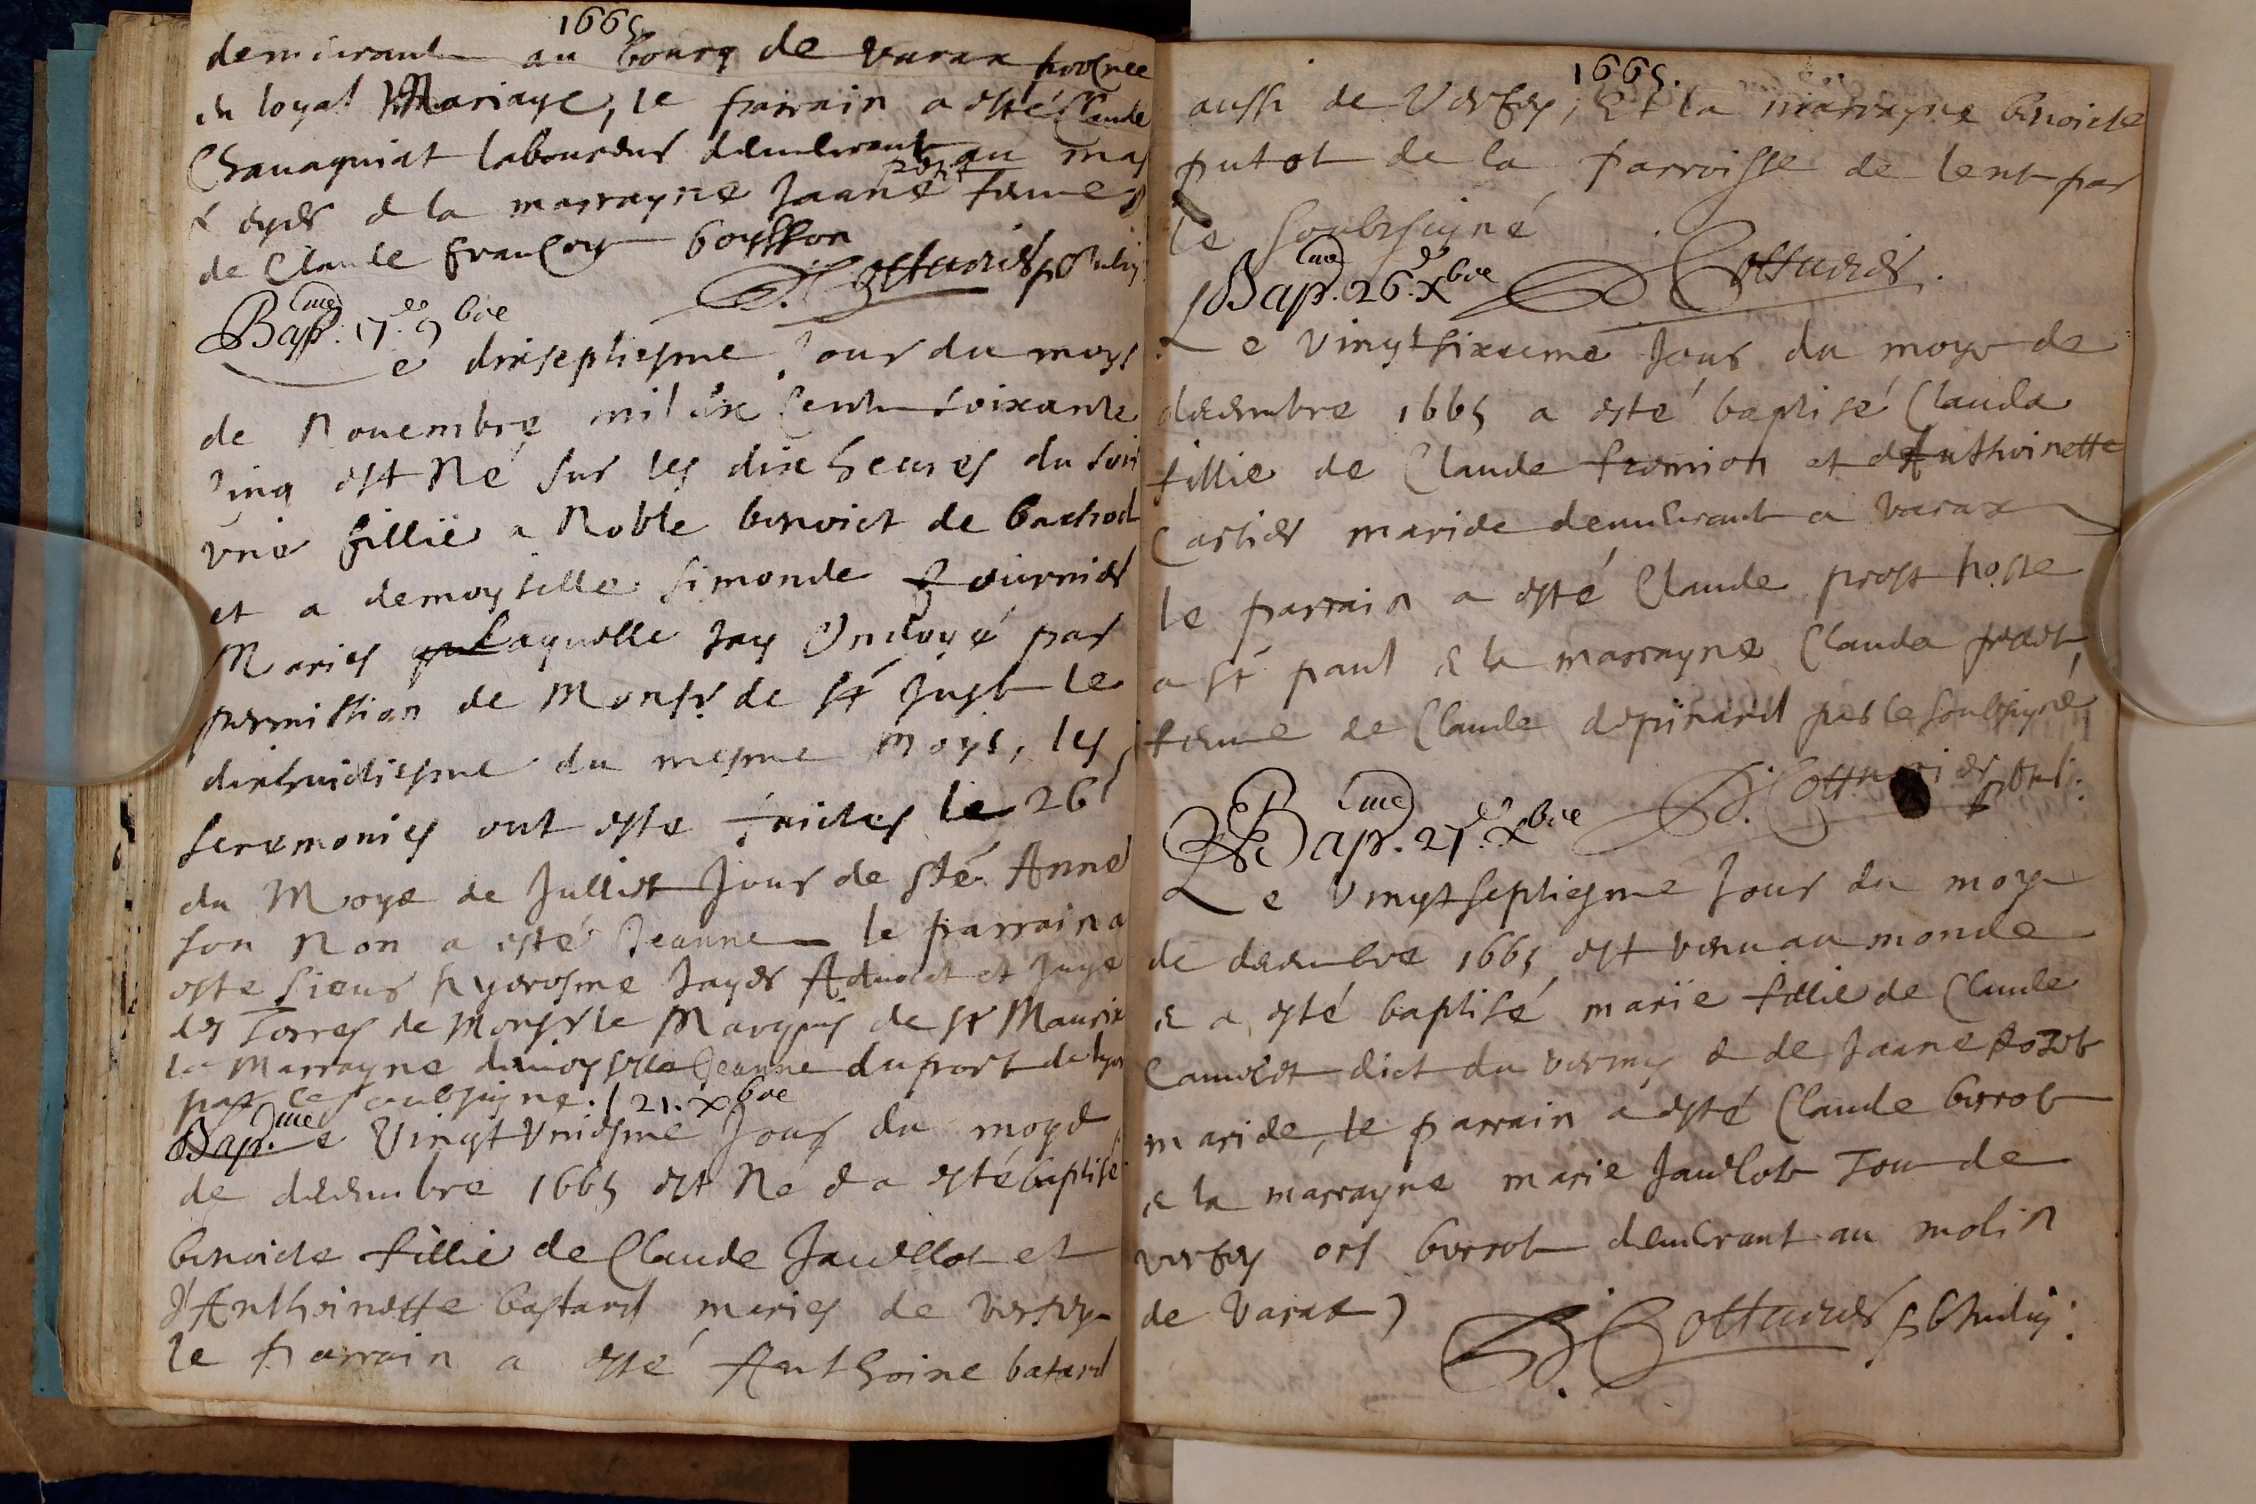 1665
demeurant au bourg de varax procree
en loyal Mariage, le parrain a esté Claude
Chanaquiat laboureur demeurant au mas
& la marrayne Jaane femme
de Claude françoys boysson
D. Cottarier
Bap. 17e 9bre
e dixseptiesme Jour du moys
de Nouembre mil six Cent soixante
Cinq est Né sur les dix heures du soir
vne fillie a Noble benoict de bachod
et a demoyselle simonde fournier
Maries laquelle Jay Ondoyé par
permission de Monsr de St Just le
dixhuictiesme du mesme moys, les
seremonies ont este faictes le 26e
du Moys de Julliet Jour de Sté Anne
son Non a esté Jeanne le parrain a
este sieur hyerosme Jayer Aduocat et Juge
des Terres de Monsr le Marquis de St Maurix
la Marrayne demoyselle Jeanne duport de lyon
par le soubsigne. 21. Xbre
Bap.me e Vingt vniesme Jour du moys
de decembre 1665 est Né & a esté baptisé
benoicte fillie de Claude Jauellot et
d'Anthoinette bastard maries de versey
le parrain a esté Anthoine batard
1665.
aussi de Versey, Et la marrayne benoicte
putot de la parroisse de lent par
le soubsigné
D. Cottarier.
Bap. 26e Xbre
Le vingtsixieme Jour du moys de
decembre 1665 a esté baptisé Clauda
fillie de Claude fromion et dAnthoinette
Cartier marie demeurant a varax
le parrain a esté Claude prost hoste
a St paul & la marrayne Clauda
femme de Claude depinard par le soubsigné
D. Cottarier
Bap. 27e Xbre
Le vingtseptiesme Jour du moys
de decembre 1665 est venu au monde
& a esté baptisé marie fillie de Claude
dict du & de Jaane
marie, le parrain a esté Claude borrot
& la marrayne marie Jauelot Tou de
versey ors borrot demeurant au molin
de Varax
D. Cottarier